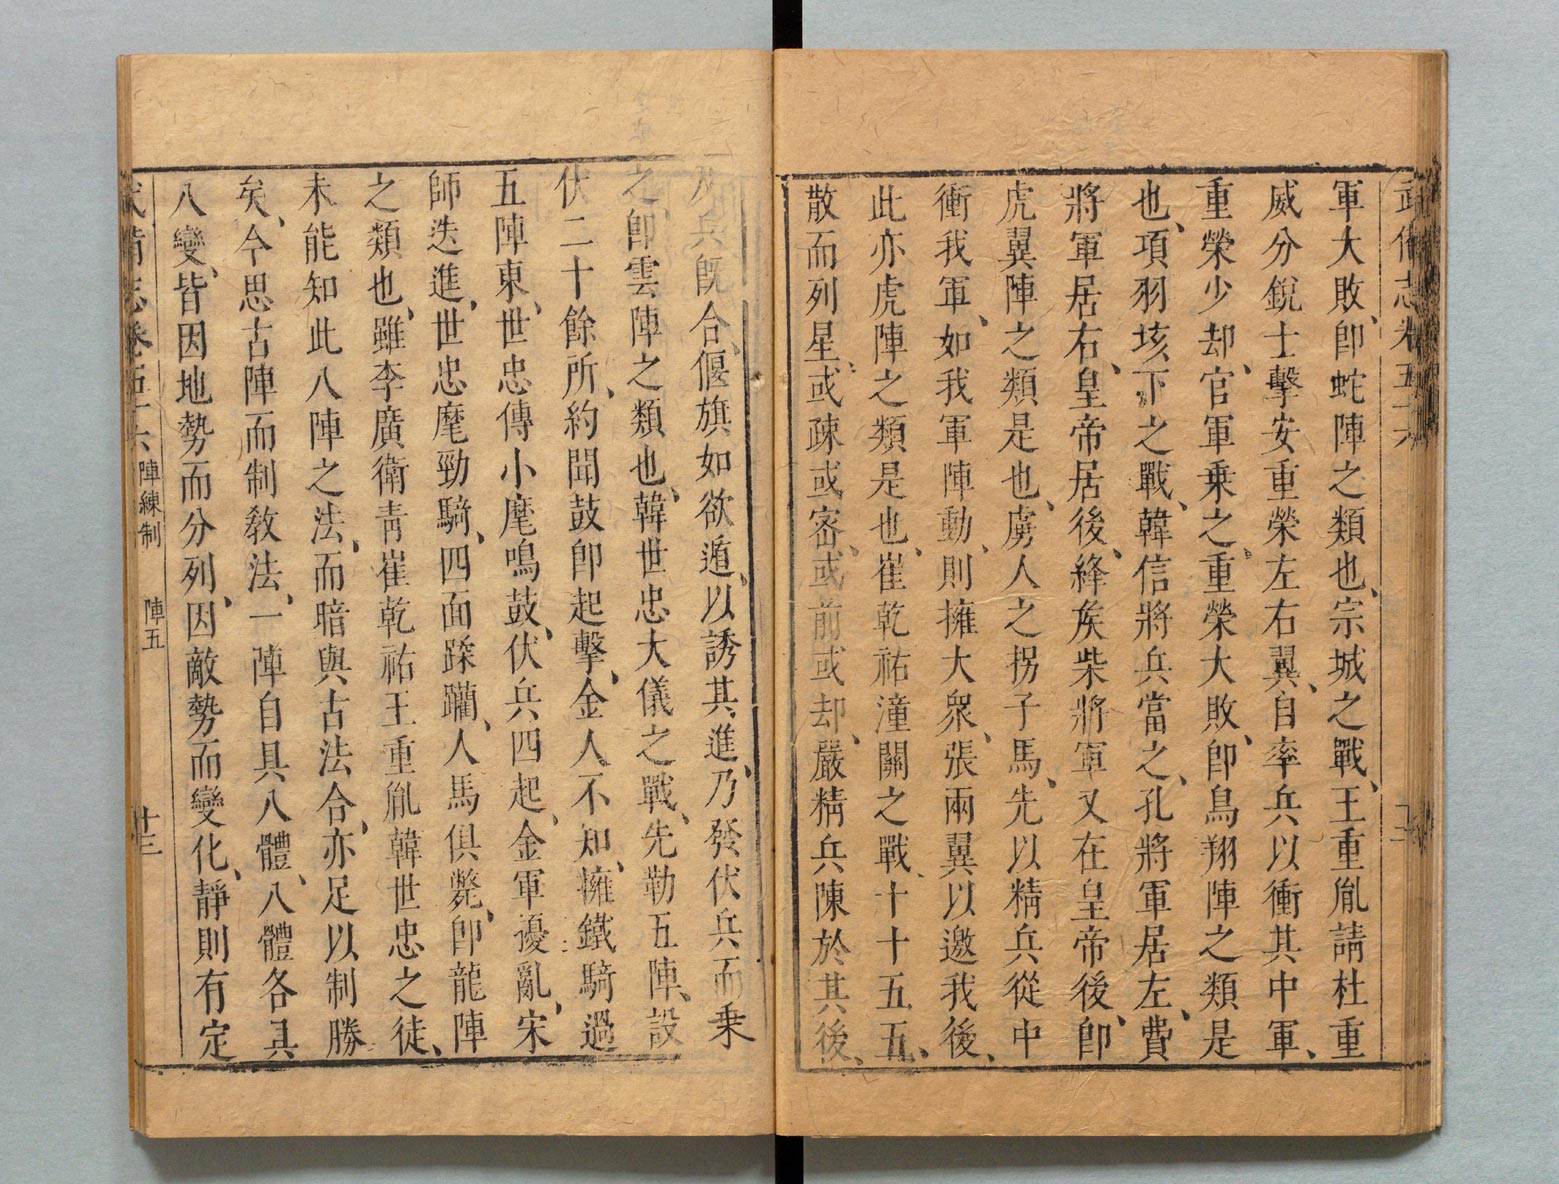 武備志卷五十六
軍大敗、卽蛇陣之類也、宗城之戰、王重胤請杜重
威分銳士擊安重榮左右翼、自率兵以衝其中軍、
重榮少却、官軍乗之、重榮大敗、卽鳥翔陣之類是
也、項羽垓下之戰、韓信將兵當之、孔將軍居左、費
將軍居右、皇帝居後、絳矦柴將軍又在皇帝後、卽
虎翼陣之類是也、虜人之拐子馬、先以精兵從中
衝我軍、如我軍陣動、則擁大衆、張兩翼以邀我後、
此亦虎陣之類是也、崔乾祐潼關之戰、十十五五、
散而列星、或疎或密、或前或却、嚴精兵陳於其後、
乃兵旣合、偃旗如欲遁、以誘其進、乃發伏兵而乗
之、卽雲陣之類也、韓世忠大儀之戰、先勒五陣、設
伏二十餘所、約聞鼓卽起擊、金人不知、擁鐵騎過
五陣東、世忠傳小麾鳴鼓、伏兵四起、金軍擾亂、宋
師迭進、世忠麾勁騎、四面蹂躪、人馬俱斃、卽龍陣
之類也、雖李廣衛靑崔乾祐王重胤韓世忠之徒、
未能知此八陣之法、而暗與古法合、亦足以制勝
矣、今思古陣而制敎法、一陣自具八體、八體各具
八變、皆因地勢而分列、因敵勢而變化、靜則有定
武備志卷五十六 陣練制 陣五 廿三